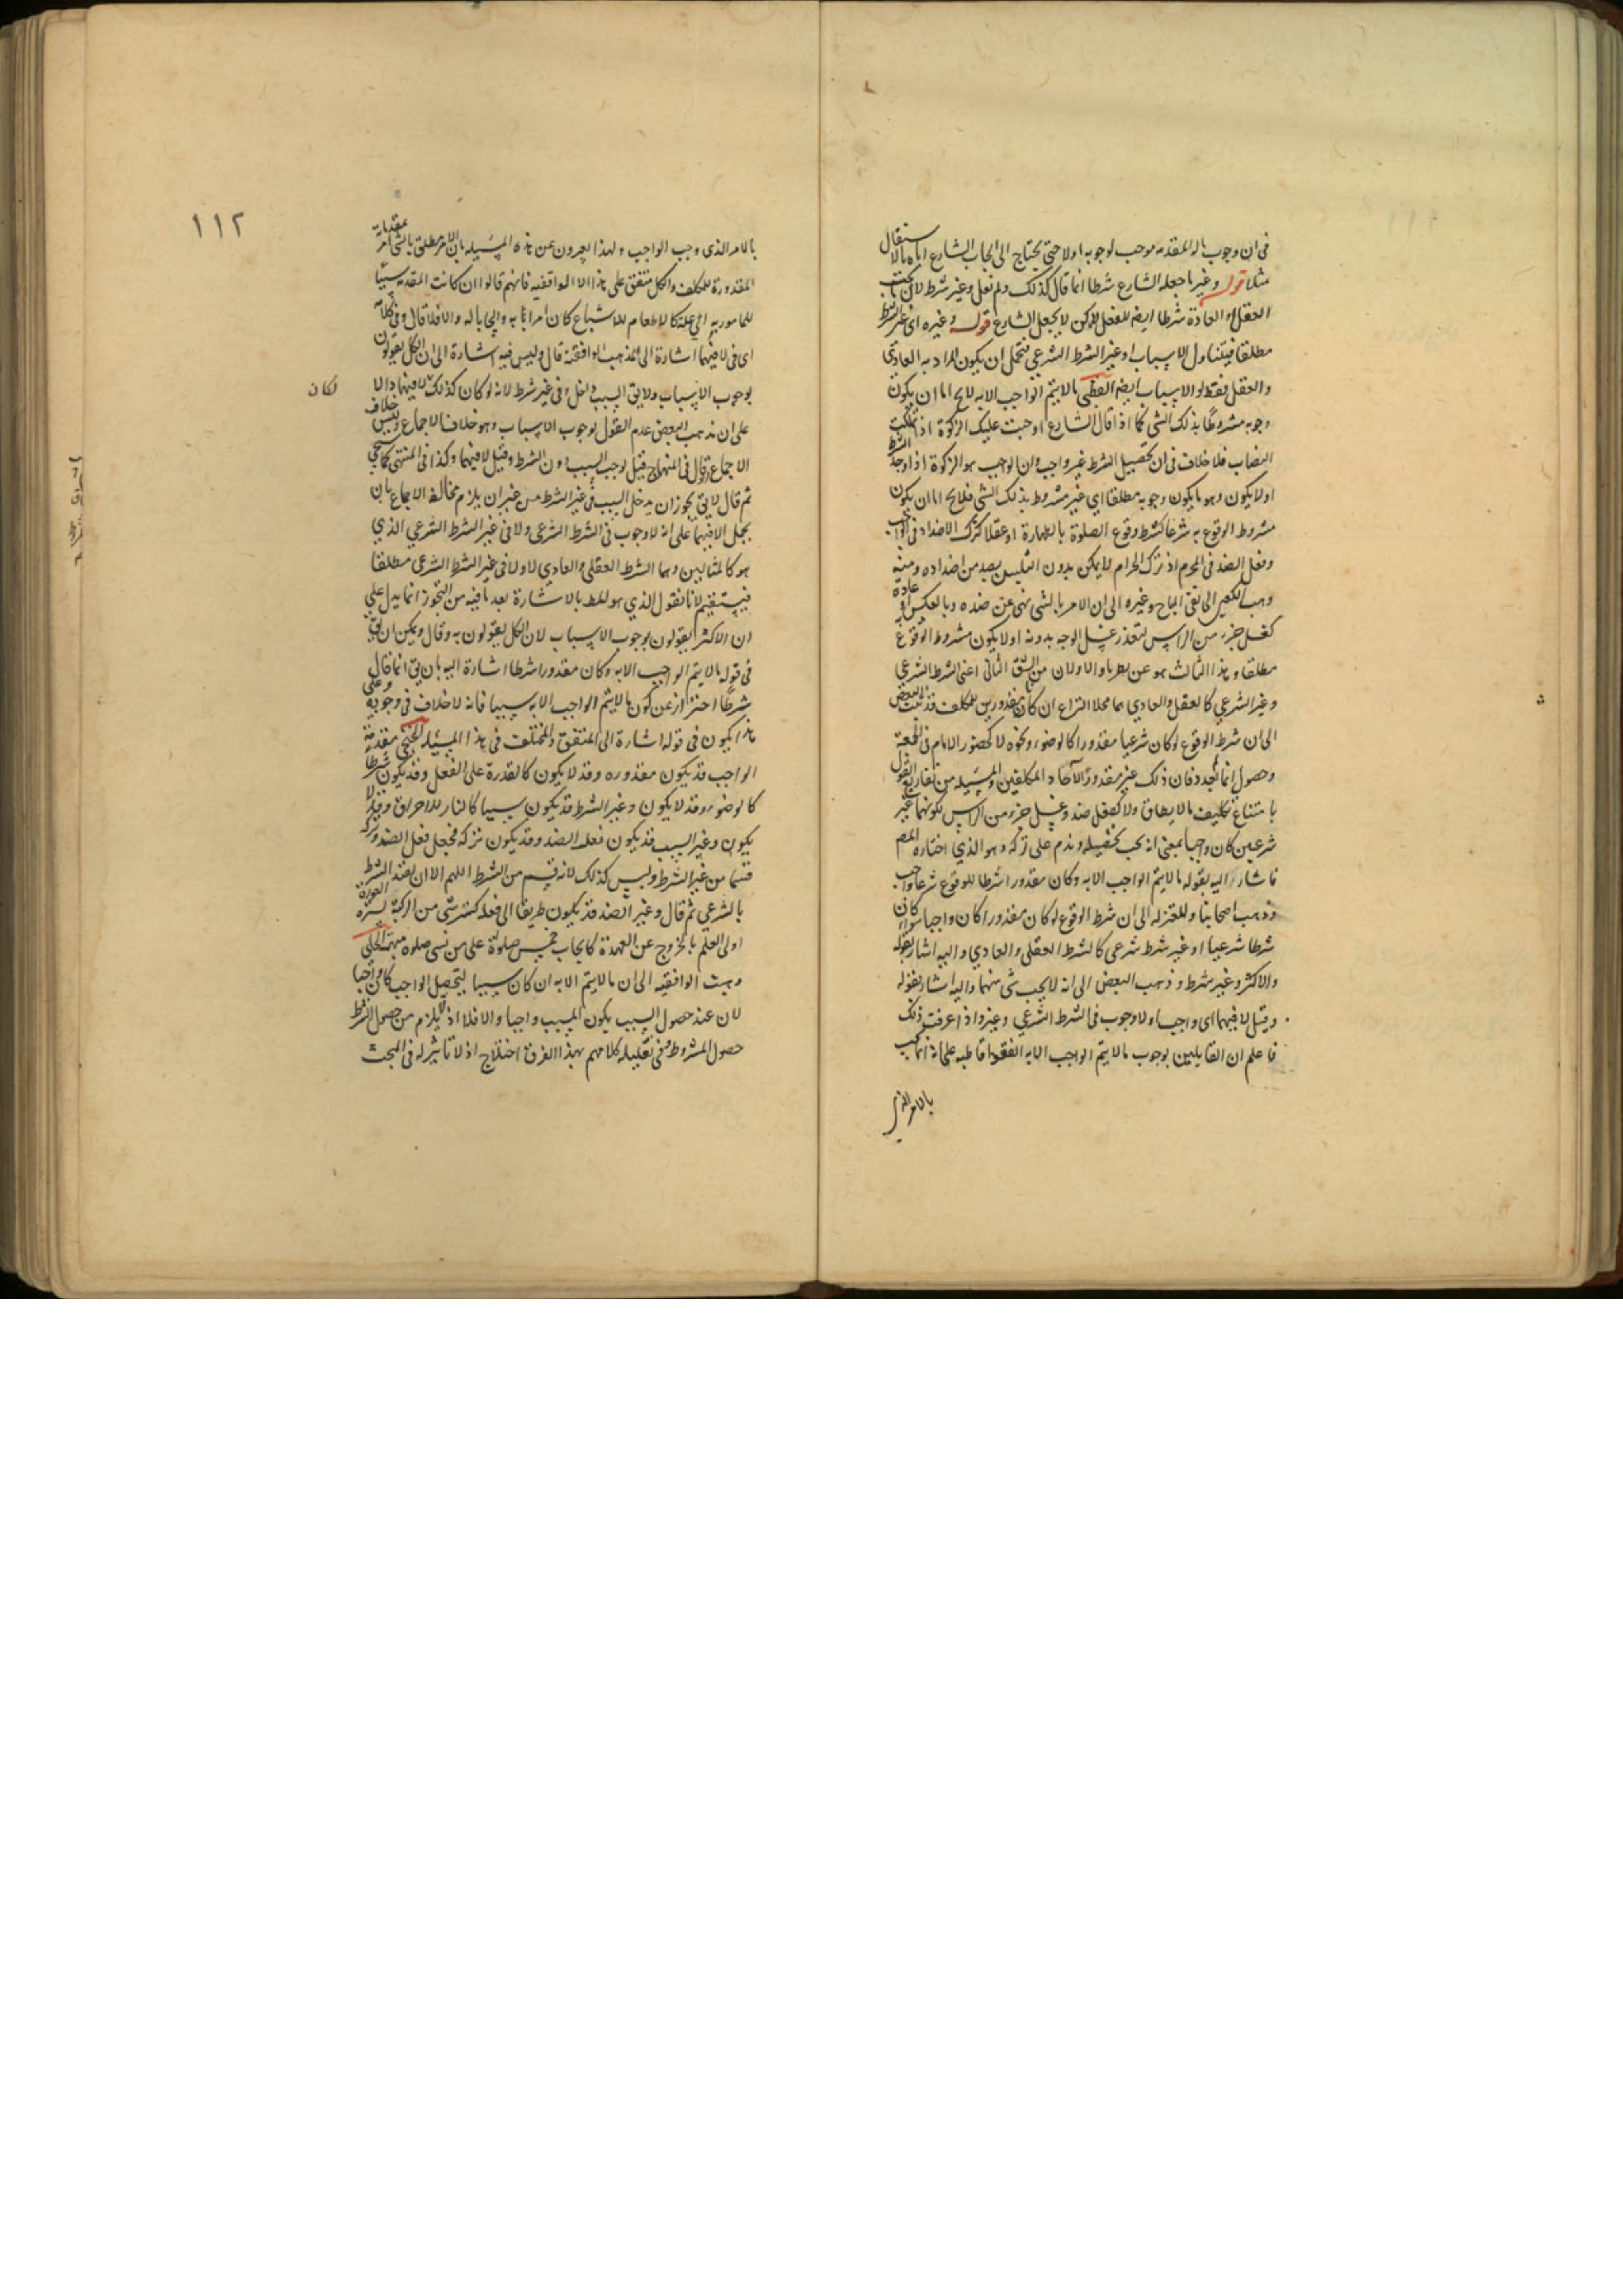 فى ان وجوب ماله المقدمه موجب لوجوبه اولا حتى يحتاج الى ايجاب الشارع اياه بالاستقلال
مثلا قوله وغير ما جعله الشارع شرطا انما قال كذلك ولم يقل وغير شرط لان
العقل او العادة شرطا ايضا للفعل لكن لا بجعل الشارع قوله وغيره اى غير الشرط
مطلقا فيتناول الاسباب او غير الشرط الشرعى فيحتمل ان يكون المراد به العادى
والعقلى فقط او الاسباب ايضا القطبى ما لا يتم الواجب الا به لا يخ اما ان يكون
وجوبه مشروطا بذلك الشى كما اذا قال الشارع اوجبت عليك الزكوة اذا ملكت
النصاب فلا خلاف فى ان تحصيل الشرط غير واجب وان الواجب هو الزكوة اذا وجد الشرط
او لا يكون وهو ما يكون وجوبه مطلقا اى غير مشروط بذلك الشى فلا يخ اما ان يكون
مشروط الوقوع به شرعا كشرط وقوع الصلوة بالطهارة او عقلا كترك الاضداد فى الواجب
وفعل الضد فى المحرم اذ ترك الحرام لا يمكن بدون التلبس بضد من اضداده ومنه
ذهب الكعبى الى نفى المباح وغيره الى ان الامر بالشى نهى عن ضده وبالعكس او عادة
كغسل جزء من الراس لتعذر غسل الوجه بدونه او لا يكون مشروط الوقوع به
مطلقا وهذا الثالث هو عن والاولان من الشق الثانى اعنى الشرط الشرعى
وغير الشرعى كالعقلى والعادى هما محلا النزاع ان كانا مقدورين للمكلف فذهب البعض
الى ان شرط الوقوع لو كان شرعيا مقدورا كالوضوء ونحوه لا كحضور الامام فى الجمعة
وحصول تمام العدد فان ذلك غير مقدور لآحاد المكلفين والمسيلة من تفاريع القول
بامتناع تكليف ما لا يطاق ولا كفعل ضد وغسل جزء من الراس لكونهما غير
شرعيين كان واجبا بمعنى انه يجب تحصيله ويذم على تركه وهو الذى اختاره المص
فاشار اليه بقوله ما لا يتم الواجب الا به وكان مقدورا شرطا للوقوع شرعا واجب
وذهب اصحابنا والمعتزله الى ان شرط الوقوع لو كان مقدورا كان واجبا سواء كان
شرطا شرعيا او غير شرط شرعى كالشرط العقلى والعادى واليه اشار بقوله
والاكثر وغير شرط وذهب البعض الى انه لا يجب شى منهما واليه اشار بقوله
وقيل لا فيهما اى واجبا ولا وجوب فى الشرط الشرعى وغيره اذا عرفت ذلك
فاعلم ان القايلين بوجوب ما لا يتم الواجب الا به اتفقوا قاطبه على انه انما يجب
بالامر الذى
١١٢
بالامر الذى وجب الواجب ولهذا يعبرون عن هذه المسيله بان الامر المطلق بالشى امر بمقدماته
المقدورة للمكلف والكل متفق على هذا الا الواقفيه فانهم قالوا ان كانت المقدمه سببا
للمامور به اى علة كالاطعام للاشباع كان امرا به وايجابا له والا فلا قال وفى كلامه
اى فى لا فيهما اشارة الى المذهب الواقفية قال وليس فيه اشارة الى ان الكل يقولون
بوجوب الاسباب ولا يق السبب داخل فى غير شرط لانه لو كان كذلك لا فيهما دالا
لكان
على ان مذهب البعض عدم القول بوجوب الاسباب وهو خلاف الاجماع وليس خلاف
الاجماع وقال فى المنهاج قيل يوجب السبب دون الشرط وقيل لا فيهما وكذا فى المنتهى كما سيجى
ثم قال لا يق يجوز ان يدخل السبب فى غير الشرط من غير ان يلزم مخالفة الاجماع بان
يحمل لا فيهما على انه لا وجوب فى الشرط الشرعى ولا فى غير الشرط الشرعى الذى
هو كالمثالين وهما الشرط العقلى والعادى لا ولا فى غير الشرط الشرعى مطلقا
فيستقيم لانا نقول الذى هو بالاشارة بعد ما فيه من التجوز انما يدل على
ان الاكثر يقولون بوجوب الاسباب لان الكل يقولون به وقال ويمكن ان يق
فى قوله ما لا يتم الواجب الا به وكان مقدورا شرطا اشارة اليه بان يق انما قال
شرطا احترازا عن كون ما لا يتم الواجب الا به سببا فانه لا خلاف فى وجوبه وعلى
هذا يكون فى قوله اشارة الى المتفق والمختلف فى هذا المسيله الخنجى مقدمة
الواجب قد يكون مقدوره وقد لا يكون كالقدرة على الفعل وقد يكون شرطا
كالوضوء وقد لا يكون وغير الشرط قد يكون سببا كالنار للاحراق وقد لا
يكون وغير السبب قد يكون فعله الضد وقد يكون تركه فجعل فعل الضد وتركه
قسما من غير الشرط وليس كذلك لانه قسم من الشرط اللهم الا ان يقيد الشرط
بالشرعى ثم قال وغير الضد قد يكون طريقا الى فعله كستر شى من الركبة لستر العورة
او الى العلم بالخروج عن العهدة كايجاب خمس صلوة على من نسى صلوة مبهمة الحلى
ذهبت الواقفيه الى ان ما لا يتم الا به ان كان سببا لتحصيل الواجب كان واجبا
لان عند حصول السبب يكون المسبب واجبا والا فلا اذ لا يلزم من حصول الشرط
حصول المشروط وفى تعليله كلامهم بهذا الفرق اختلاج اذ لا تاثير له فى المبحث